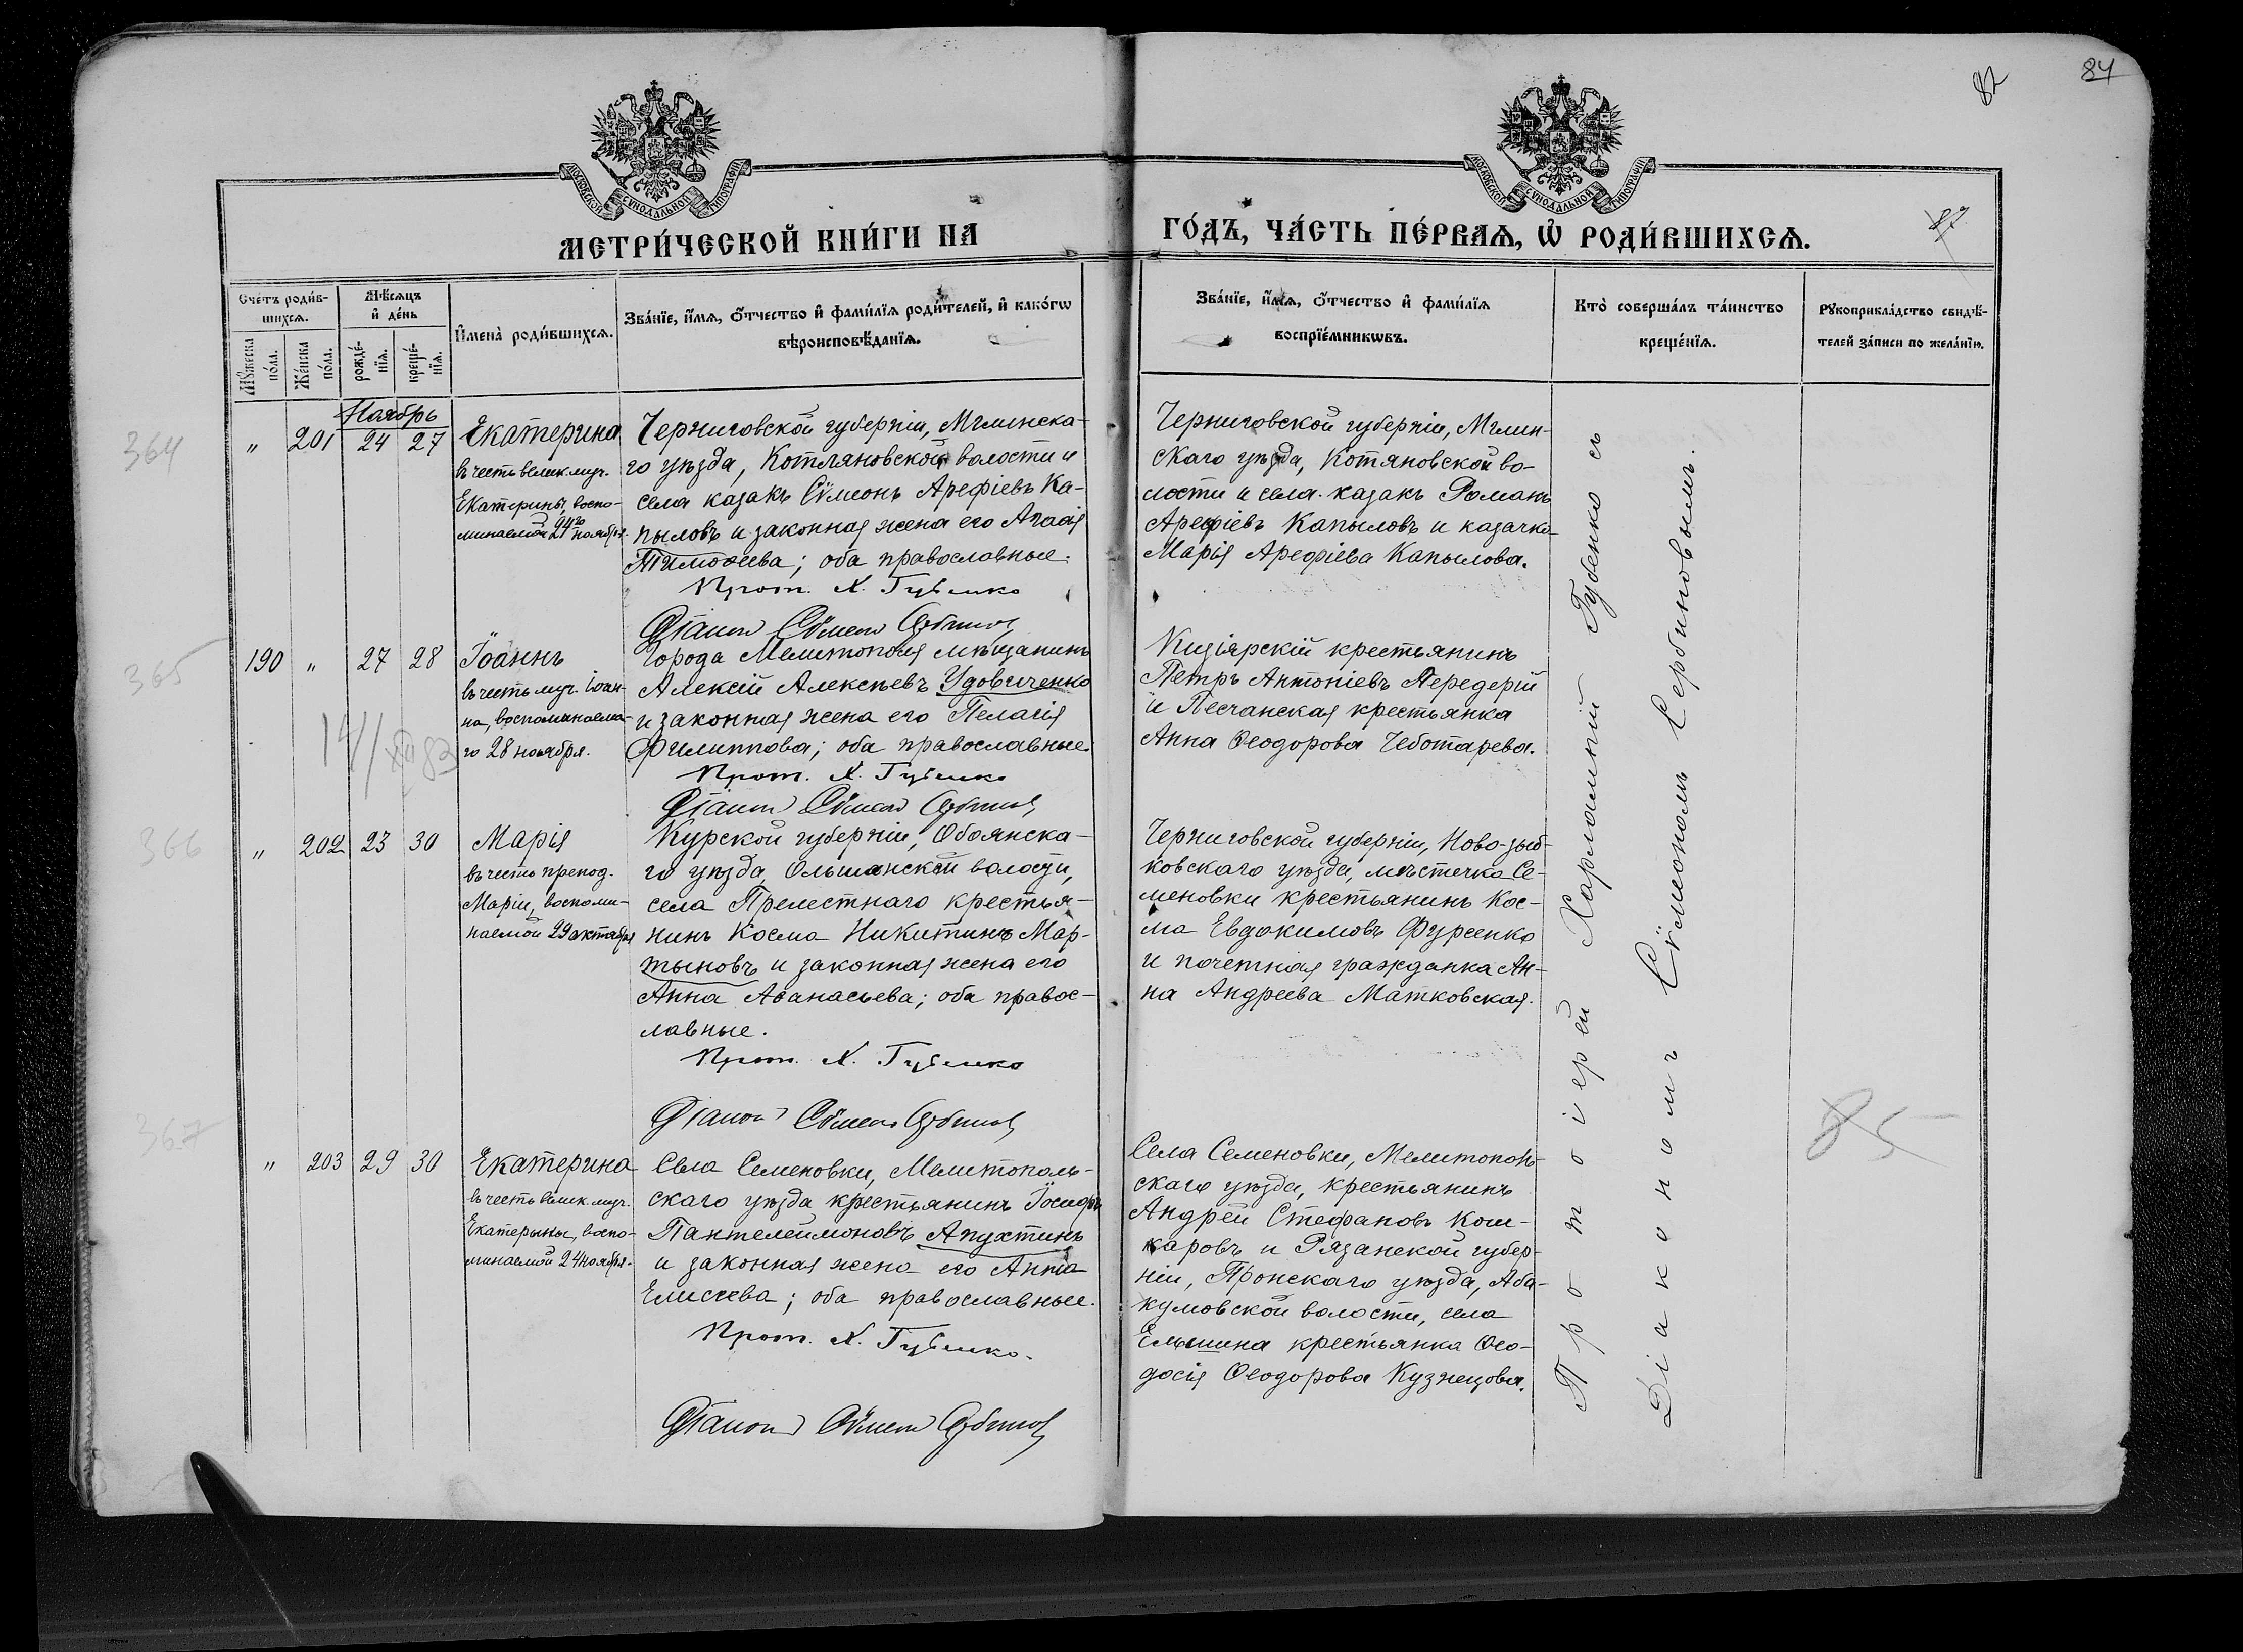 84
82
87
МОСКОВСКОЙ СѴНОДАЛЬНОЙ ТИПОГРАФІИ
МОСКОВСКОЙ СѴНОДАЛЬНОЙ ТИПОГРАФІИ
МЕТРИ́ЧЕСКОЙ КНИ́ГИ НА
ГО́ДЪ, ЧА́СТЬ ПЕ́РВАѦ, Ѡ҆ РОДИ́ВШИХСѦ.
Сче́тъ роди́в-
шихсѧ.
Мꙋ́жеска
по́ла.
Же́нска
по́ла.
Мѣ́сѧцъ
и҆ де́нь
рожде́-
нїѧ.
креще́-
нїѧ.
И҆мена̀ роди́вшихсѧ.
Зва́нїе, и҆́мѧ, ѻ҆́тчество и҆ фами́лїѧ роди́телей, и҆ како́гѡ
вѣроисповѣ́данїѧ.
Зва́нїе, и҆́мѧ, ѻ҆́тчество и҆ фами́лїѧ
воспрїе́мникѡвъ.
Кто̀ соверша́лъ та́инство
креще́нїѧ.
Рꙋкоприкла́дство свидѣ́-
телей за́писи по жела́нїю.
Ноябрь
364
" 201 24 27
Екатерина
въ честь велик. муч.
Екатерины, воспо-
минаемой 24го ноября.
Черниговской губерніи, Мглинска-
го уѣзда, Котляновской волости и
села казакъ Сѵмеонъ Арефіевъ Ка-
пыловъ и законная жена его Агаѳія
Тимоѳеева; оба православные.
Прот. Х. Губенко
Діаконъ Сѵмеонъ Сербиновъ
Черниговской губерніи, Мглин-
скаго уѣзда, Котяновской во-
лости и села казакъ Романъ
Арефіевъ Капыловъ и казачка
Марія Арефіева Капылова.
365
190 " 27 28
Іоаннъ
въ честь муч. Іоан-
на, воспоминаема-
го 28 ноября.
Города Мелитополя мѣщанинъ
Алексій Алексѣевъ Удовиченко
и законная жена его Пелагія
Филиппова; оба православные.
Прот. Х. Губенко
Діаконъ Сѵмеонъ Сербиновъ
Кизіярскій крестьянинъ
Петръ Антоніевъ Передерій
и Песчанская крестьянка
Анна Ѳеодорова Чеботарева.
366
" 202 23 30
Марія
въ честь препод.
Маріи, воспоми-
наемой 29 октября
Курской губерніи, Обоянска-
го уѣзда, Ольшанской волости,
села Прелестнаго крестья-
нинъ Косма Никитинъ Мар-
тыновъ и законная жена его
Анна Аѳанасьева; оба правос-
лавные.
Прот. Х. Губенко
Діаконъ Сѵмеонъ Сербиновъ
Черниговской губерніи, Ново-зыб-
ковскаго уѣзда, мѣстечка Се-
меновки крестьянинъ Кос-
ма Евдокимовъ Фурсенко
и почетная гражданка Ан-
на Андреева Матковская.
367
" 203 29 30
Екатерина
въ честь велик. муч.
Екатерины, воспо-
минаемой 24 ноября.
Села Семеновки, Мелитополь-
скаго уѣзда крестьянинъ Іосифъ
Пантелеймоновъ Апухтинъ
и законная жена его Анна
Елисеева; оба православные.
Прот. Х. Губенко.
Діаконъ Сѵмеонъ Сербиновъ
Села Семеновки, Мелитополь-
скаго уѣзда, крестьянинъ
Андрей Стефановъ Кош-
каровъ и Рязанской губер-
ніи, Пронскаго уѣзда, Аба-
кумовской волости, села
Елшина крестьянка Ѳео-
досія Ѳеодорова Кузнецова.
Протоіерей Харлампій Губенко съ
Діакономъ Сѵмеономъ Сербиновымъ.
85